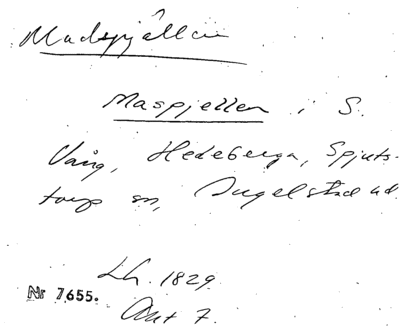 Madspjällen
Maspjellen i S.
Vång, Hedeberga, Spjuts-
torp sn, Ingelstad hd.
Lh. 1829
Nr 7655.
Akt 7.